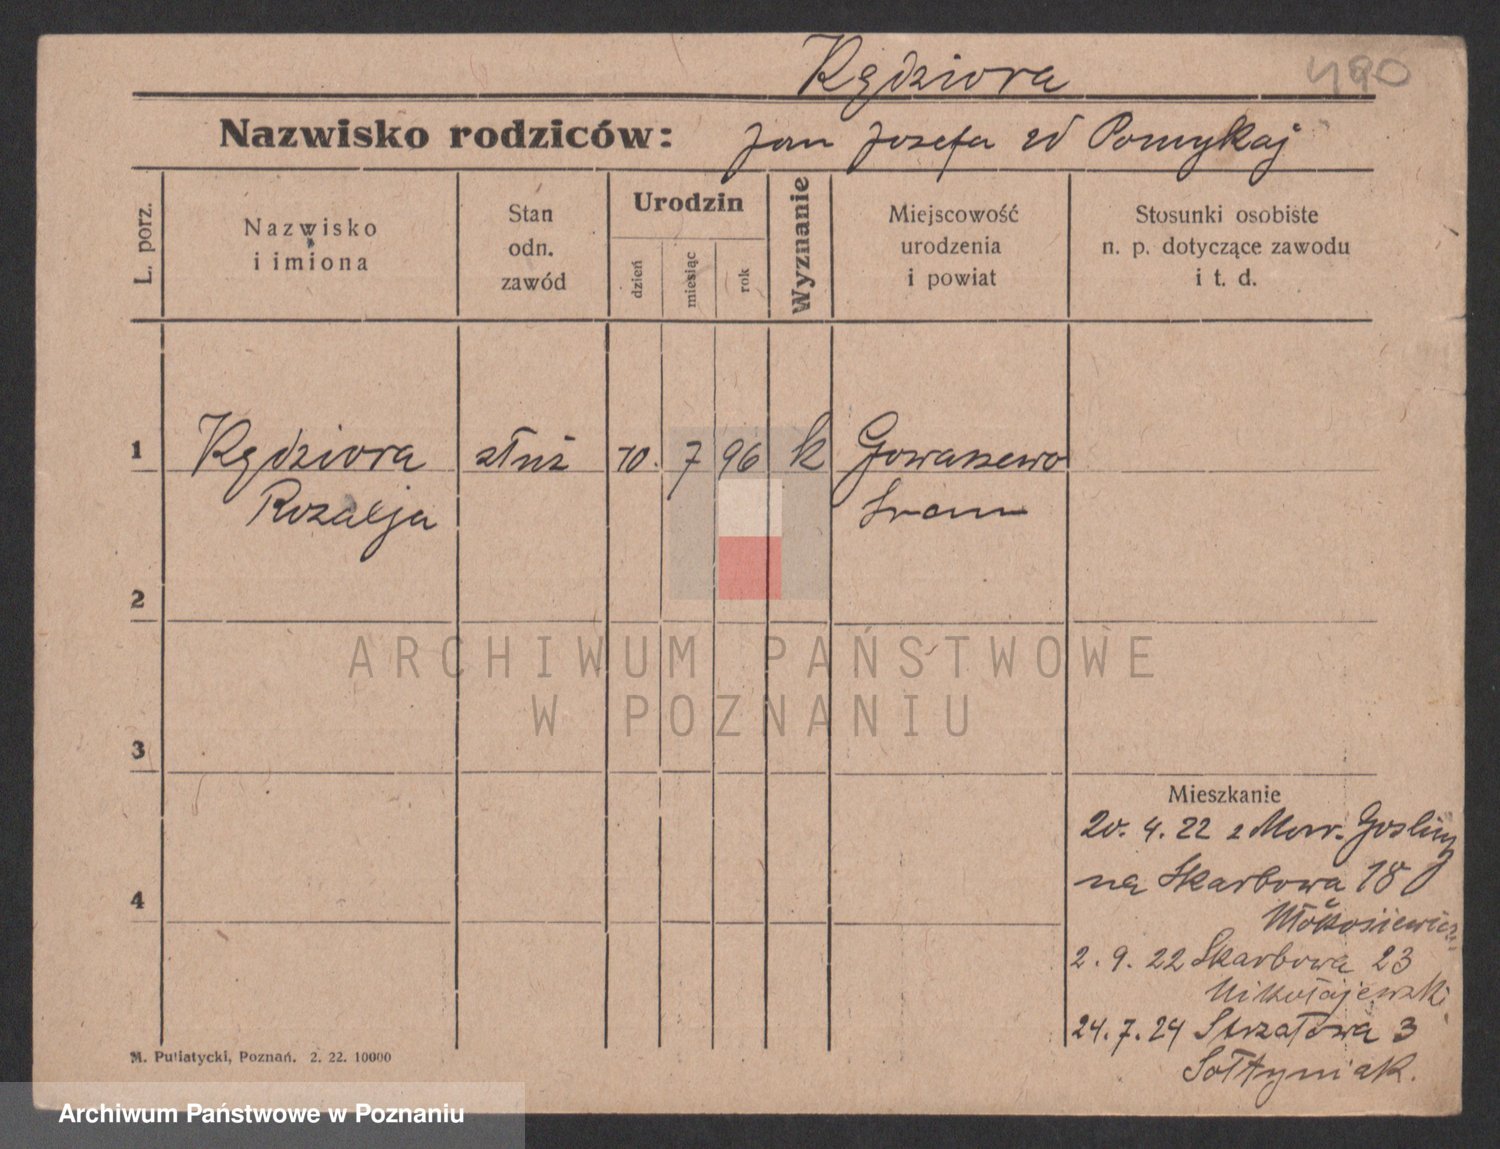 Kędziora
490
Nazwisko rodziców: Jan Józefa zd Pomykaj
L. porz.
Nazwisko
i imiona
Stan
odn.
zawód
Urodzin
dzień
miesiąc
rok
Wyznanie
Miejscowość
urodzenia
i powiat
Stosunki osobiste
n. p. dotyczące zawodu
i t. d.
1 Kędziora służ 10. 7 96 k Gowarzewo
Rozalja Śrem
2
3
4
ARCHIWUM PAŃSTWOWE
W POZNANIU
Mieszkanie
20. 4. 22 z Mur. Gośliny
na Skarbowa 18
2. 9. 22 Skarbowa 23
Mikołajewski
24. 7. 24 Strzałowa 3
Sołtyniak.
M. Putiatycki, Poznań. 2. 22. 10000
Archiwum Państwowe w Poznaniu